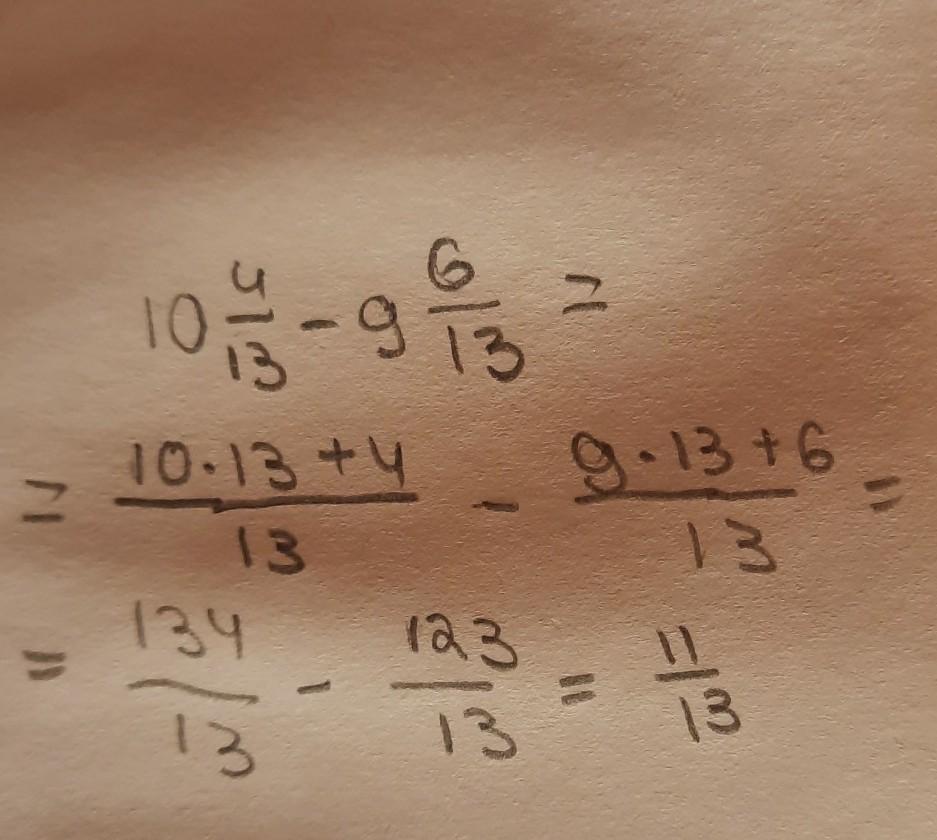 10 4/13 - 9 6/13 =
= (10·13+4)/13 - (9·13+6)/13 =
= 134/13 - 123/13 = 11/13